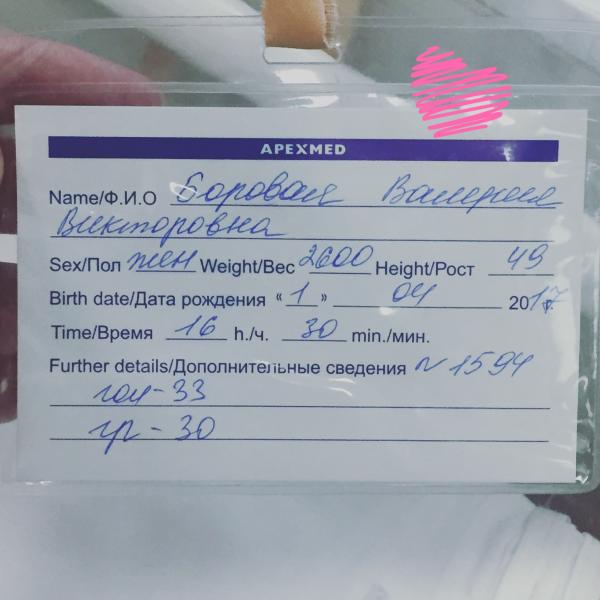 APEXMED
Name/Ф.И.О Боровая Валерия
Викторовна
Sex/Пол жен Weight/Вес 2600 Height/Рост 49
Birth date/Дата рождения «1» 04 2017г.
Time/Время 16 h./ч. 30 min./мин.
Further details/Дополнительные сведения N 1594
гол-33
гр-30